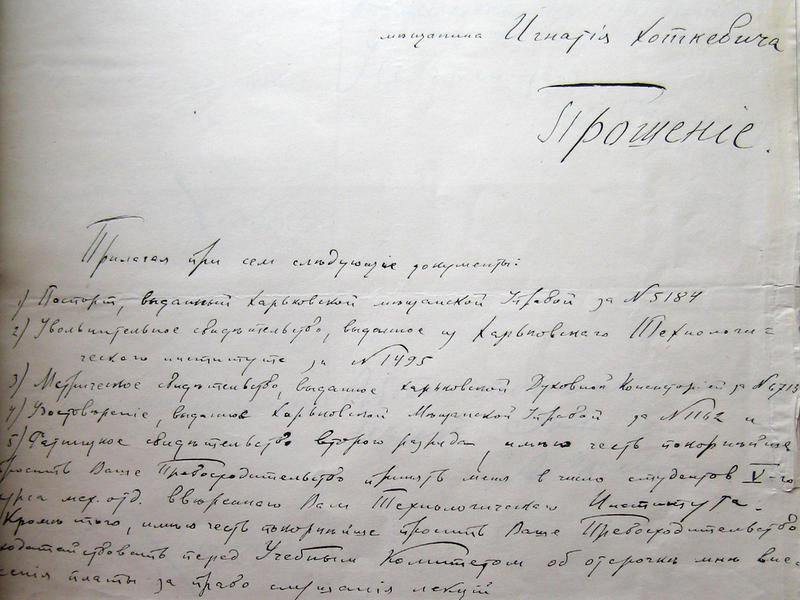 мѣщанина Игнатія Хоткевича
Прошеніе.
Прилагая при сем слѣдующіе документы:
1) Паспорт, выданный Харьковской мѣщанской Управой за № 5184
2) Увольнительное свидѣтельство, выданное из Харьковскаго Технологи=
ческаго института за № 1495
3) Метрическое свидѣтельство, выданное Харьковской Духовной Консисторіей за № 6713
4) выданное Харьковской Мѣщанской Управой за № 1162 и
5) свидѣтельство второго разряда, имѣю честь покорнѣйше
просить Ваше Превосходительство принять меня в число студентов V-го
курса мех. отд. ввѣреннаго Вам Технологическаго Института.
Кромѣ того, имѣю честь покорнѣйше просить Ваше Превосходительство
ходатайствовать перед Учебным Комитетом об отсрочкѣ мнѣ вне-
сенія платы за право слушанія лекцій